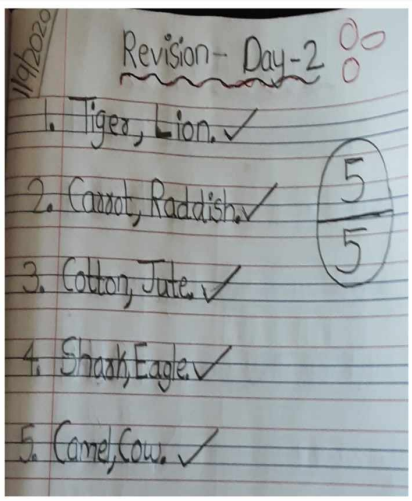 1/9/2020
Revision- Day-2
1. Tiger, Lion. ✓
2. Carrot, Raddish. ✓
3. Cotton, Jute. ✓
4. Shark, Eagle. ✓
5. Camel, Cow. ✓
5
5